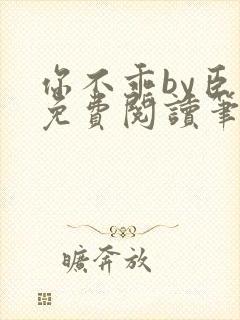 你不乖by臣
免費閱讀筆
曠奔放